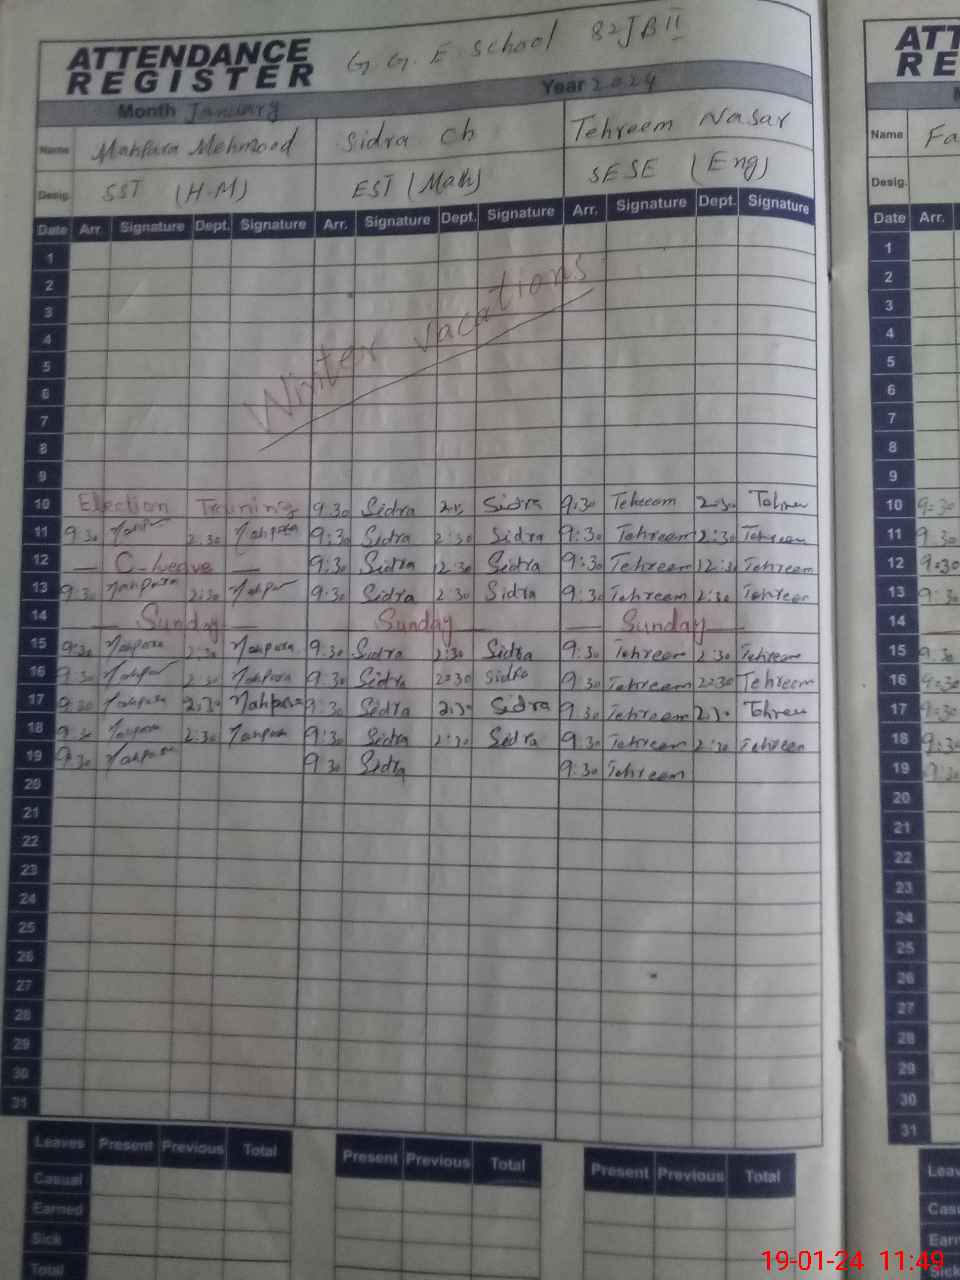 ATTENDANCE
REGISTER
G. G. E. School 82JB II
Month January Year 2024
Name Mahpara Mehmood Sidra Ch Tehreem Nasar
Desig. SST (H.M) EST (Math) SESE (Eng)
Date Arr. Signature Dept. Signature Arr. Signature Dept. Signature Arr. Signature Dept. Signature
1
2
3
4
Winter vacations
5
6
7
8
9
10 Election Training 9:30 Sidra Sidra 9:30 Tehreem 2:30
11 9:30 2:30 Mahpara 9:30 Sidra 2:30 Sidra 9:30 Tehreem 2:30 Tehreem
12 — C-leave — 9:30 Sidra 2:30 Sidra 9:30 Tehreem 12:30 Tehreem
13 9:30 Mahpara 2:30 9:30 Sidra 2:30 Sidra 9:30 Tehreem 2:30 Tehreem
14 — Sunday — Sunday — — Sunday —
15 9:30 Mahpara 2:30 Mahpara 9:30 Sidra 2:30 Sidra 9:30 Tehreem 2:30 Tehreem
16 9:30 2:30 Mahpara 9:30 Sidra 2:30 Sidra 9:30 Tehreem 2:30 Tehreem
17 9:30 Mahpara 2:30 Mahpara 9:30 Sidra 2:30 Sidra 9:30 Tehreem 2:30
18 2:30 9:30 Sidra 2:30 Sidra 9:30 Tehreem 2:30 Tehreem
19 9:30 Mahpara 9:30 Sidra 9:30 Tehreem
20
21
22
23
24
25
26
27
28
29
30
31
Leaves Present Previous Total Present Previous Total Present Previous Total
Casual
Earned
Sick
Total
ATT
RE
Name Fa
Desig.
Date Arr.
1
2
3
4
5
6
7
8
9
10 9:30
11 9:30
12 9:30
13 9:30
14
15 9:30
16 9:30
17 9:30
18 9:30
19 9:30
20
21
22
23
24
25
26
27
28
29
30
31
Leav
Casu
Earn
Sick
19-01-24 11:49